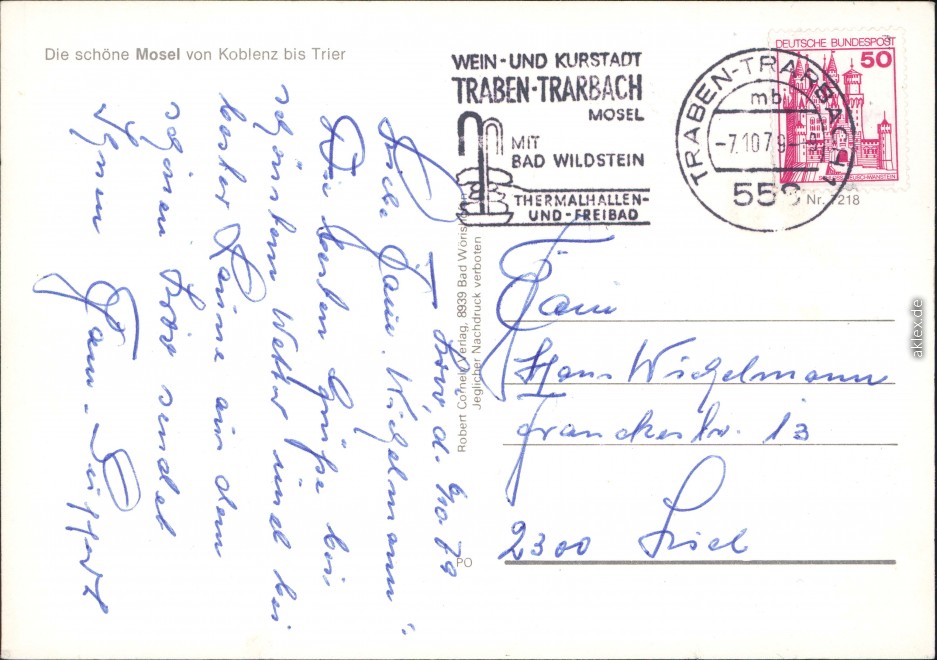 Die schöne Mosel von Koblenz bis Trier
WEIN-UND KURSTADT
TRABEN-TRARBACH
MOSEL
MIT
BAD WILDSTEIN
THERMALHALLEN-
UND-FREIBAD
TRABEN-TRARBACH 1
mb
-7.10.79-
558
DEUTSCHE BUNDESPOST
50
Nr. 7218
Robert Cornely Verlag, 8939 Bad Wörishofen
Jeglicher Nachdruck verboten
PO
d. 6/10 79
Liebe Fam. Wichelmann
Die herzlichen Grüße bei
schönstem Wetter und bei
bester Laune aus dem
schönen Trier sendet
Ihnen Fam.
Fam
Hans Wichelmann
Franckestr. 13
2300 Kiel
aklex.de